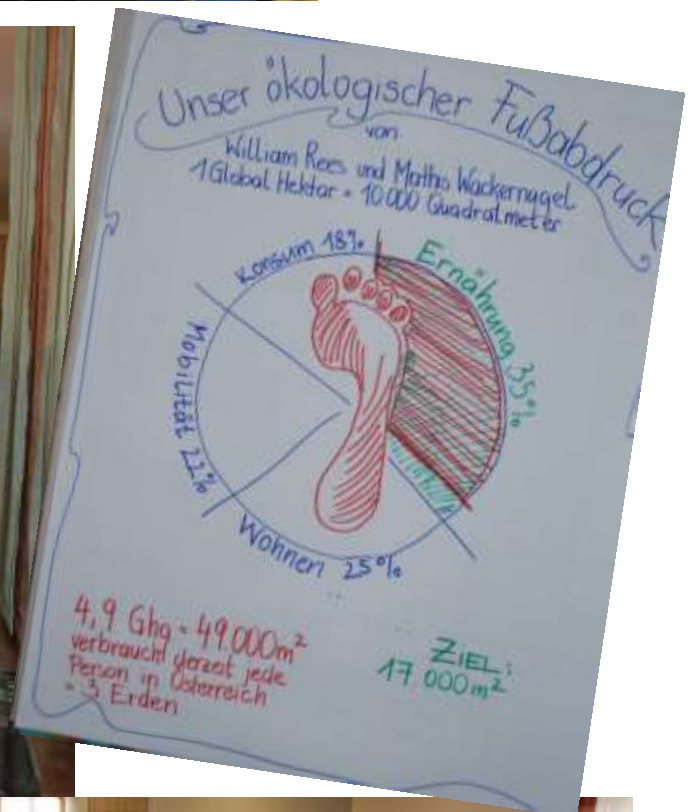 Unser ökologischer Fußabdruck
von
William Rees und Mathis Wackernagel
1 Global Hektar = 10 000 Quadratmeter
Konsum 18%
Ernährung 35%
Mobilität 22%
Wohnen 25%
4,9 Ghg = 49.000m²
verbraucht derzeit jede
Person in Österreich
= 3 Erden
ZIEL:
17 000m²